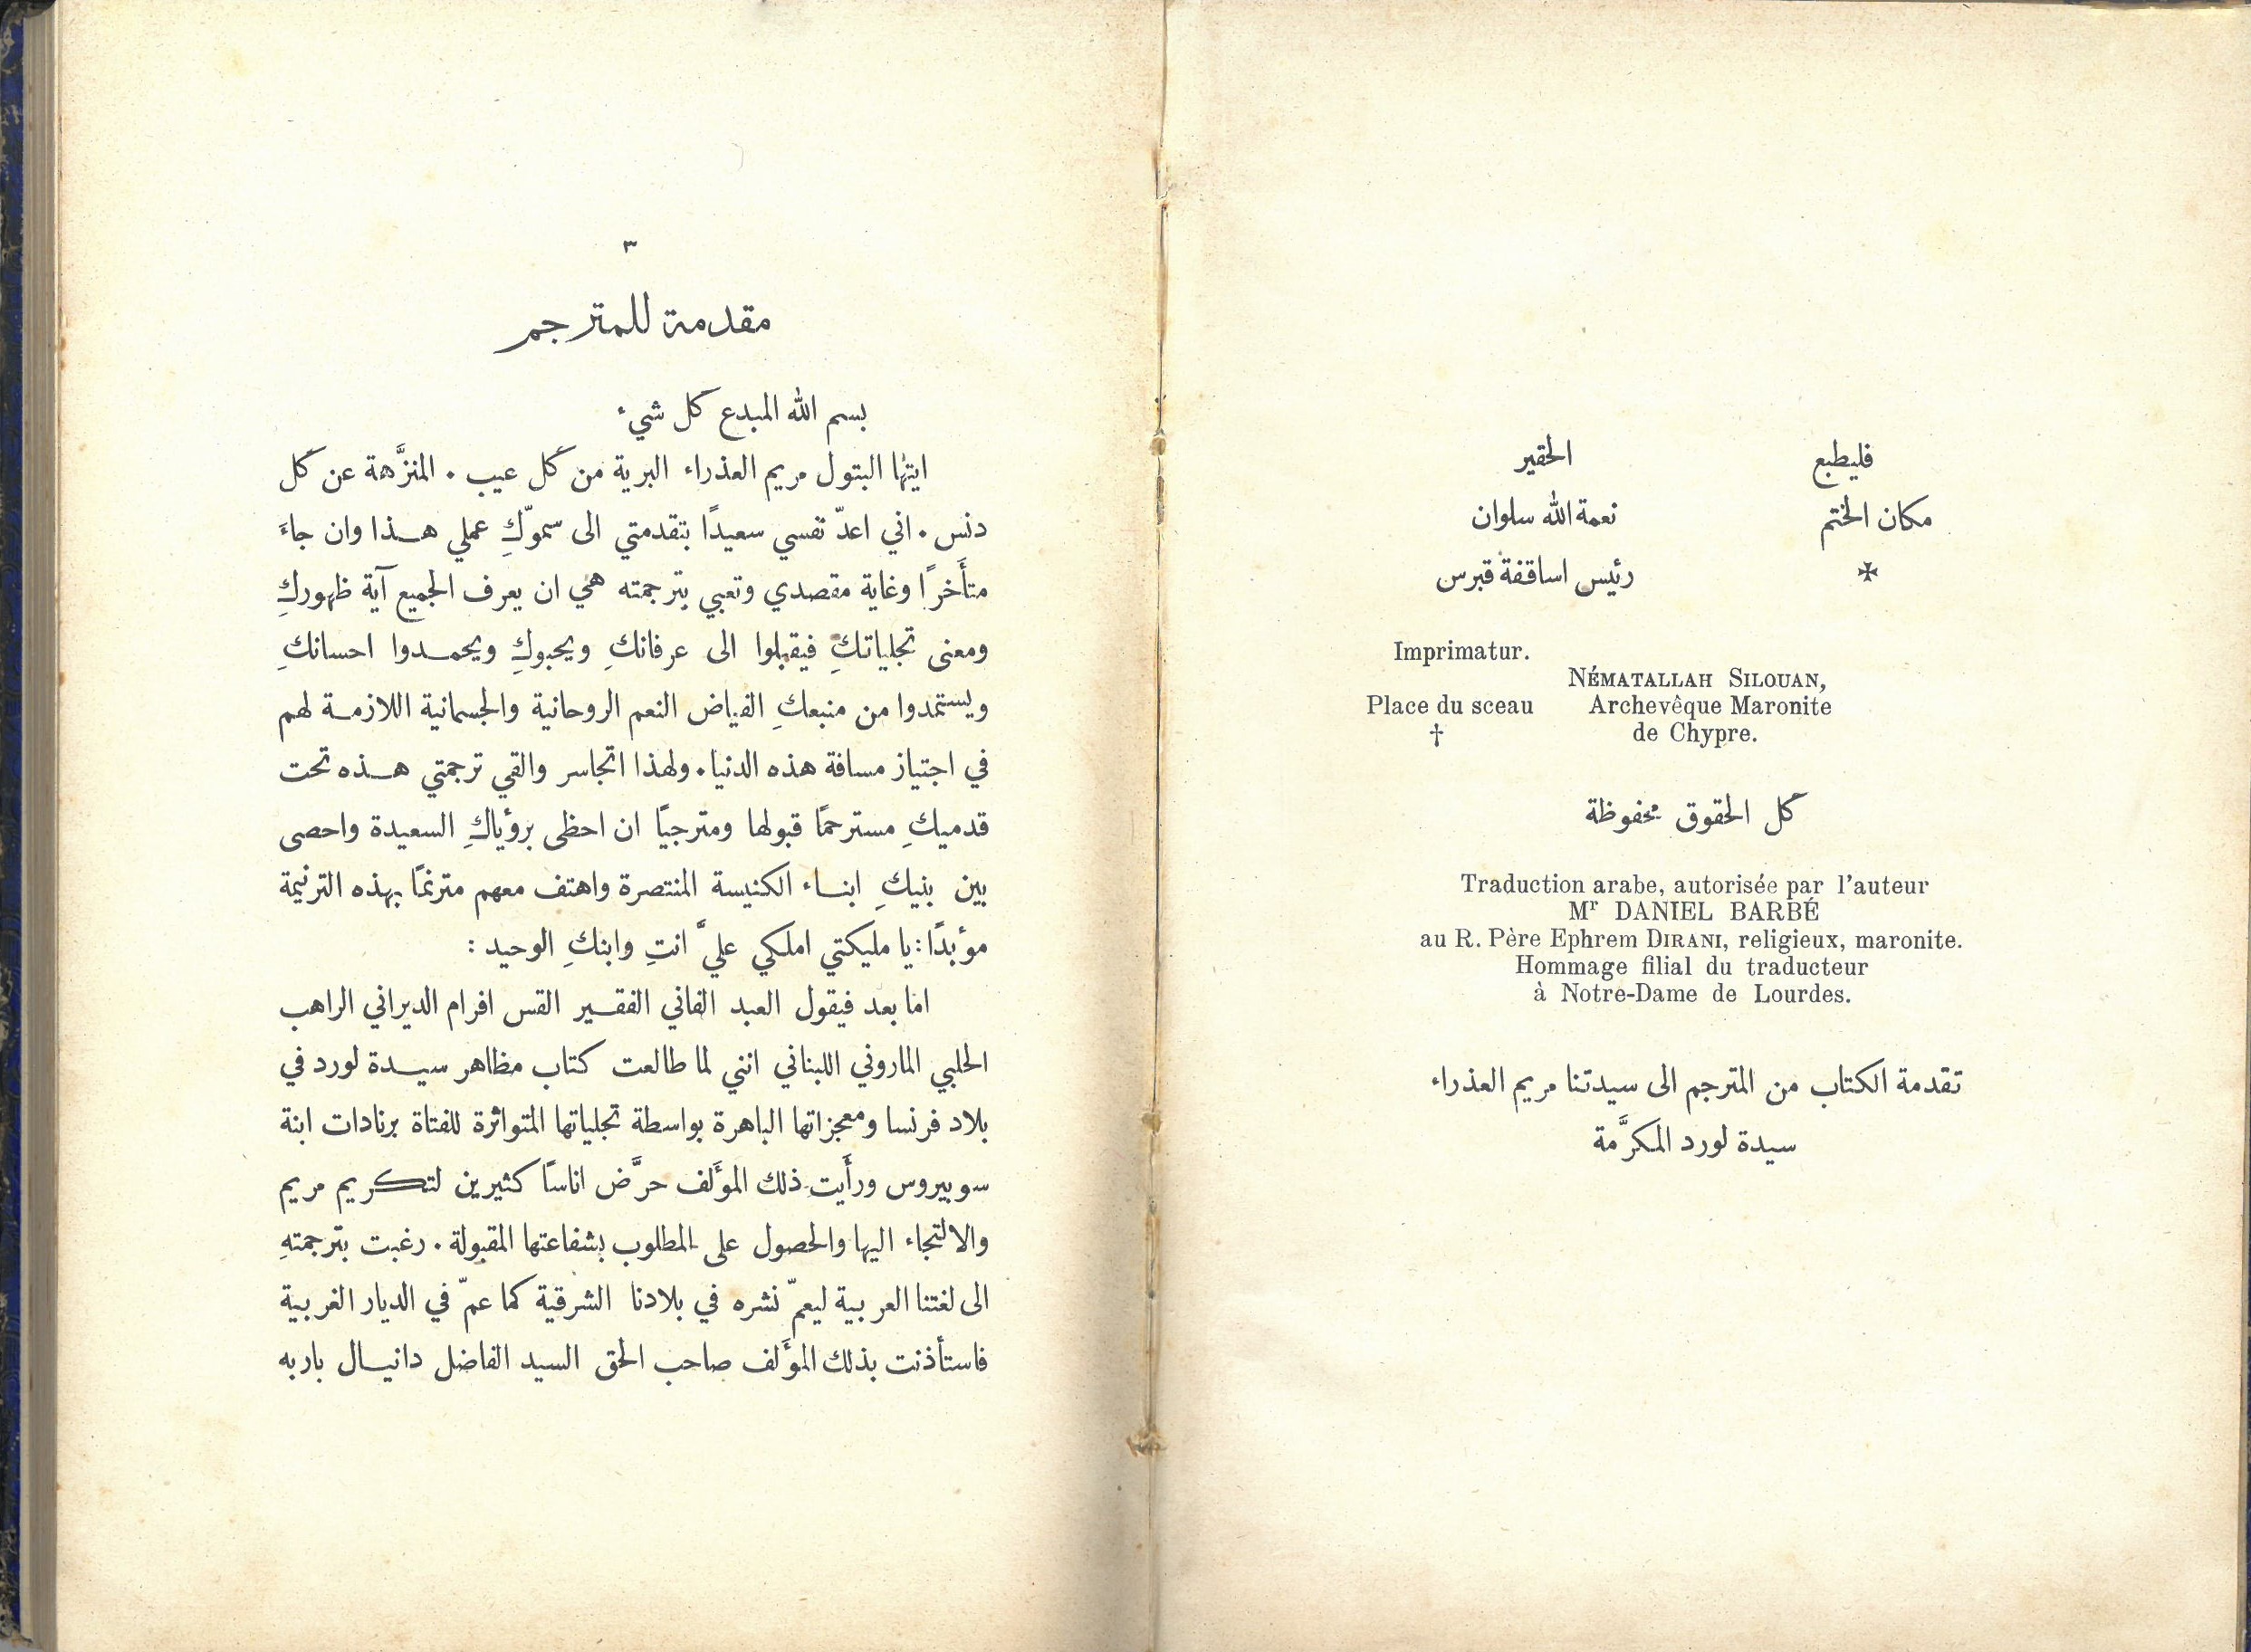 فليطبع الحقير
مكان الختم نعمة الله سلوان
✠ رئيس اساقفة قبرس
Imprimatur.
NÉMATALLAH SILOUAN,
Place du sceau Archevêque Maronite
† de Chypre.
كل الحقوق محفوظة
Traduction arabe, autorisée par l'auteur
Mr DANIEL BARBÉ
au R. Père Ephrem DIRANI, religieux, maronite.
Hommage filial du traducteur
à Notre-Dame de Lourdes.
تقدمة الكتاب من المترجم الى سيدتنا مريم العذراء
سيدة لورد المكرَّمة
٣
مقدمة للمترجم
بسم الله المبدع كل شيء
ايتها البتول مريم العذراء البرية من كل عيب . المنزَّهة عن كل
دنس . اني اعدّ نفسي سعيدًا بتقدمتي الى سموّكِ عملي هذا وان جاءَ
متأَخرًا وغاية مقصدي وتعبي بترجمته هي ان يعرف الجميع آية ظهوركِ
ومعنى تجلياتكِ فيقبلوا الى عرفانكِ ويحبوكِ ويحمدوا احسانكِ
ويستمدوا من منبعكِ الفياض النعم الروحانية والجسمانية اللازمة لهم
في اجتياز مسافة هذه الدنيا . ولهذا اتجاسر والقي ترجمتي هذه تحت
قدميكِ مسترحمًا قبولها ومترجيًا ان احظى برؤياكِ السعيدة واحصى
بين بنيكِ ابناء الكنيسة المنتصرة واهتف معهم مترنمًا بهذه الترنيمة
مؤبدًا : يا مليكتي املكي عليَّ انتِ وابنكِ الوحيد :
اما بعد فيقول العبد الفاني الفقير القس افرام الديراني الراهب
الحلبي الماروني اللبناني انني لما طالعت كتاب مظاهر سيدة لورد في
بلاد فرنسا ومعجزاتها الباهرة بواسطة تجلياتها المتواترة للفتاة برنادات ابنة
سوبيروس ورأَيت ذلك المؤَلف حرَّض اناسًا كثيرين لتكريم مريم
والالتجاء اليها والحصول على المطلوب بشفاعتها المقبولة . رغبت بترجمتهِ
الى لغتنا العربية ليعمّ نشره في بلادنا الشرقية كما عمّ في الديار الغربية
فاستأذنت بذلك المؤَلف صاحب الحق السيد الفاضل دانيال باربه